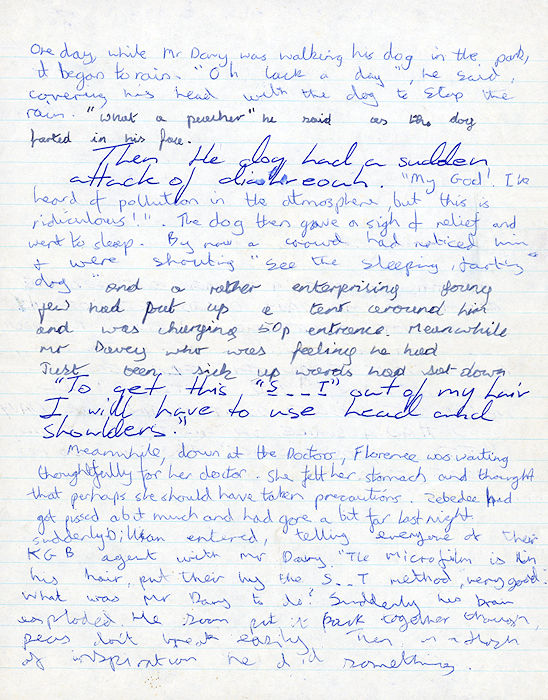 One day, while Mr Davy was walking his dog in the park,
it began to rain. "Oh lack a day", he said,
covering his head with the dog to stop the
rain. "What a pweher" he said as the dog
farted in his face.
Then the dog had a sudden
attack of diahreoah. "My God! I've
heard of pollution in the atmosphere, but this is
ridiculous!". The dog then gave a sigh of relief and
went to sleep. By now a crowd had noticed him
& were shouting "see the sleeping, farting
dog." and a rather enterprising young
jew had put up a tent around him
and was charging 50p entrance. Meanwhile
mr Davey who was feeling he had
Just been sick up words had sat down
"To get this "S...T" out of my hair
I will have to use head and
shoulders."
Meanwhile, down at the Doctors, Florence was waiting
thoughtfully for her doctor. She felt her stomach and thought
that perhaps she should have taken precautions. Zebedee had
got pissed a bit much and had gone a bit far last night.
suddenly Dillian entered, telling everyone of their
KGB agent with Mr Davy. "The microfilm is in
his hair, put their by the S..T method, very good.
What was Mr Davy to do? Suddenly his brain
exploded. He soon put it back together though,
peas don't break easily. Then in a flash
of inspiration he did something.